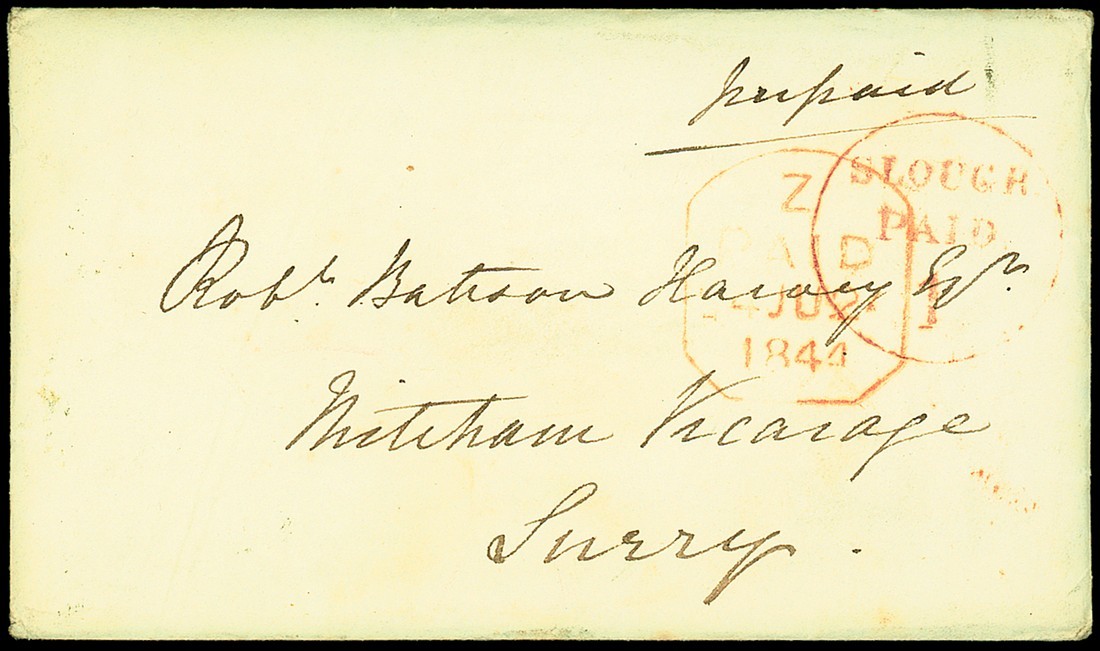 prepaid
SLOUGH
PAID
1
Z
PAID
JU
1844
Robt. Batson Harvey Esqr.
Mitcham Vicarage
Surry.